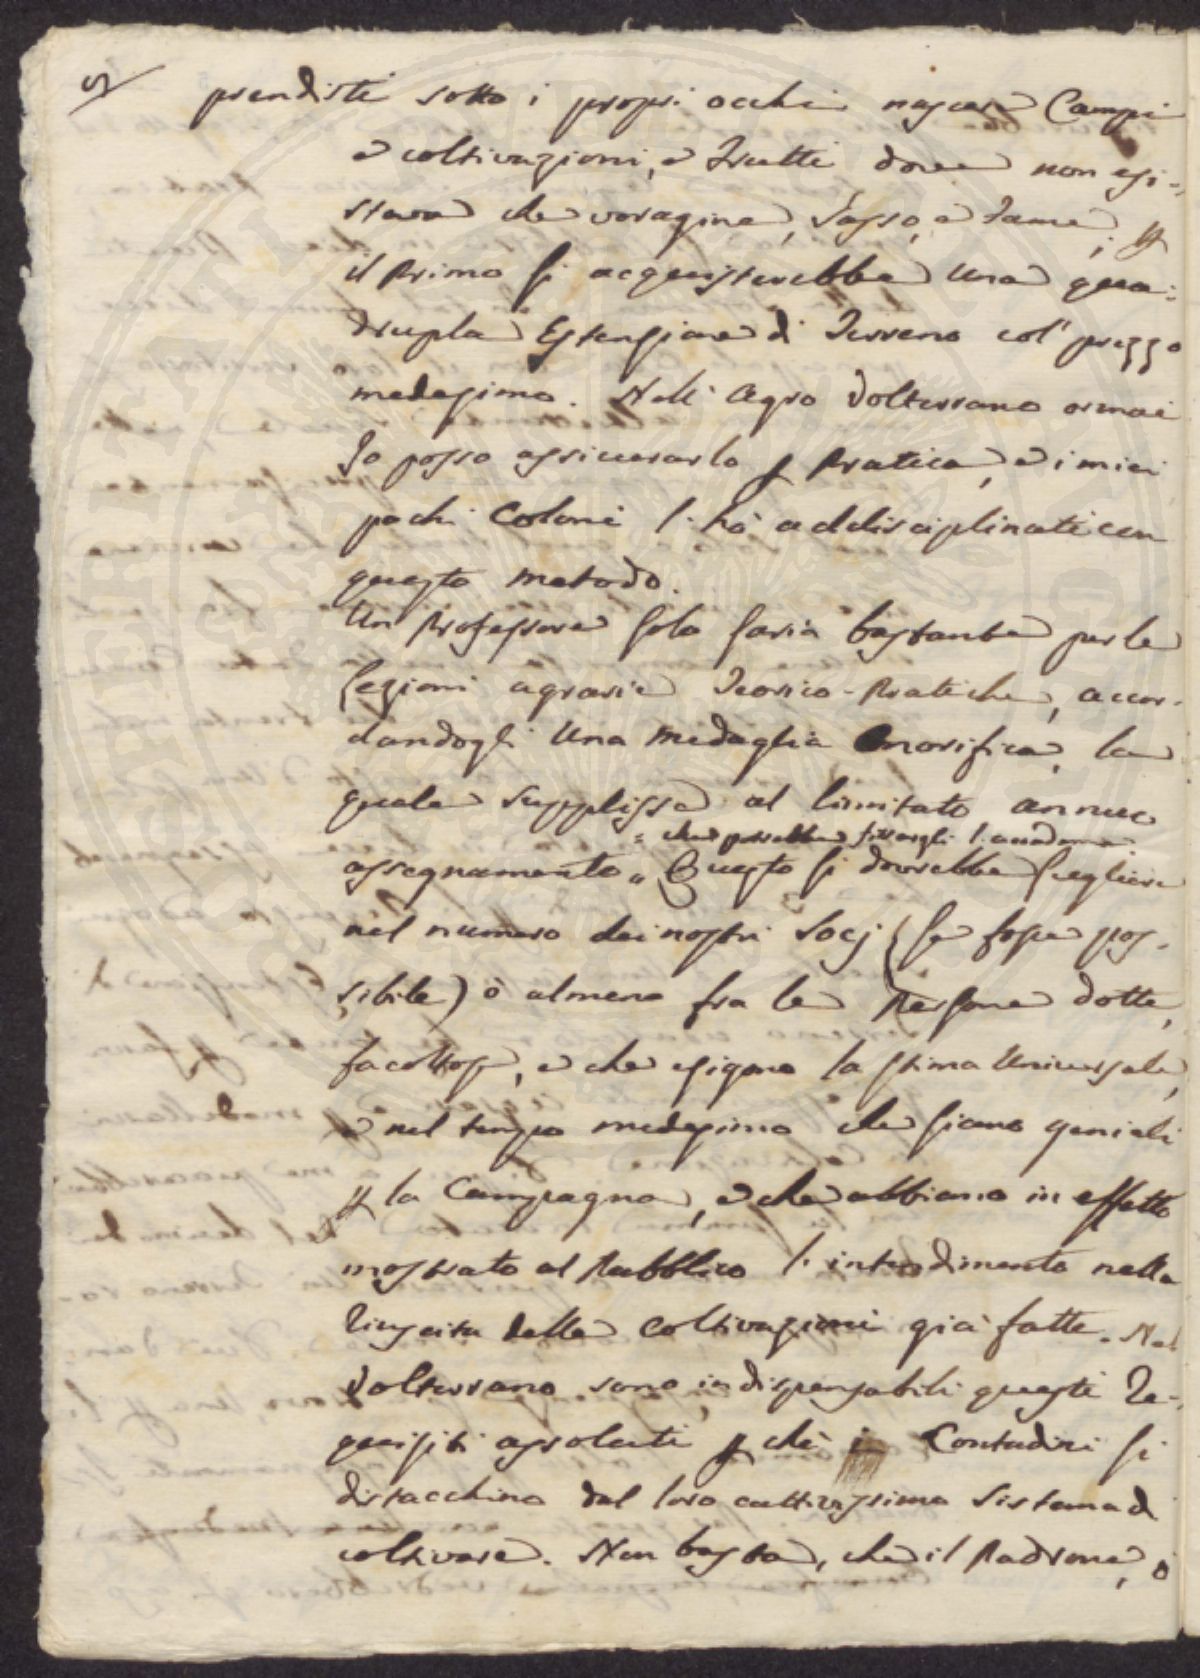 5/
prendisti sotto i propri occhi nascere Campi
e coltivazioni, e Frutti dove non esi-
steva che voragine, Sasso, e Fame; p
il Primo si acquisterebbe Una qua-
drupla Estensione di Terreno col' prezzo
medesimo. Nell' Agro Volterrano ormai
Io posso assicurarlo p Pratica, e i miei
pochi Coloni l' hò addisciplinati con
questo metodo.
Un Professore solo saria bastante per le
Lezioni agrarie Teorico-Pratiche, accor-
dandogli Una Medaglia Onorifica, la
quale supplisse al limitato annuo
= che potrebbe fissargli l'accademia.
assegnamento„ Questo si dovrebbe scegliere
nel numero dei nostri Socj (se fosse pos-
sibile) ò almeno fra le Persone dotte,
facoltose, e che esigono la stima Universale,
e nel tempo medesimo che siano geniali
p la Campagna, e che abbiano in effetto
mostrato al Pubblico l' intendimento nella
Riuscita delle Coltivazioni già fatte. Nel
Volterrano sono indispensabili questi Re-
quisiti assoluti p chè i Contadini si
distacchino dal loro cattivissimo Sistema di
coltivare. Non basta, che il Padrone, ò